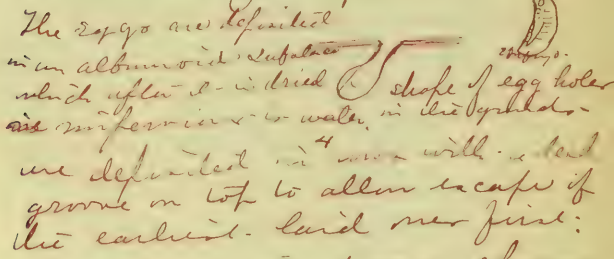 The eggs are deposited
in an albuminoid substance
which after it is dried shape of egg holes
is impervious to water, in the ground
are deposited in 4 rows with a
groove on top to allow escape of
the earliest laid ones first.